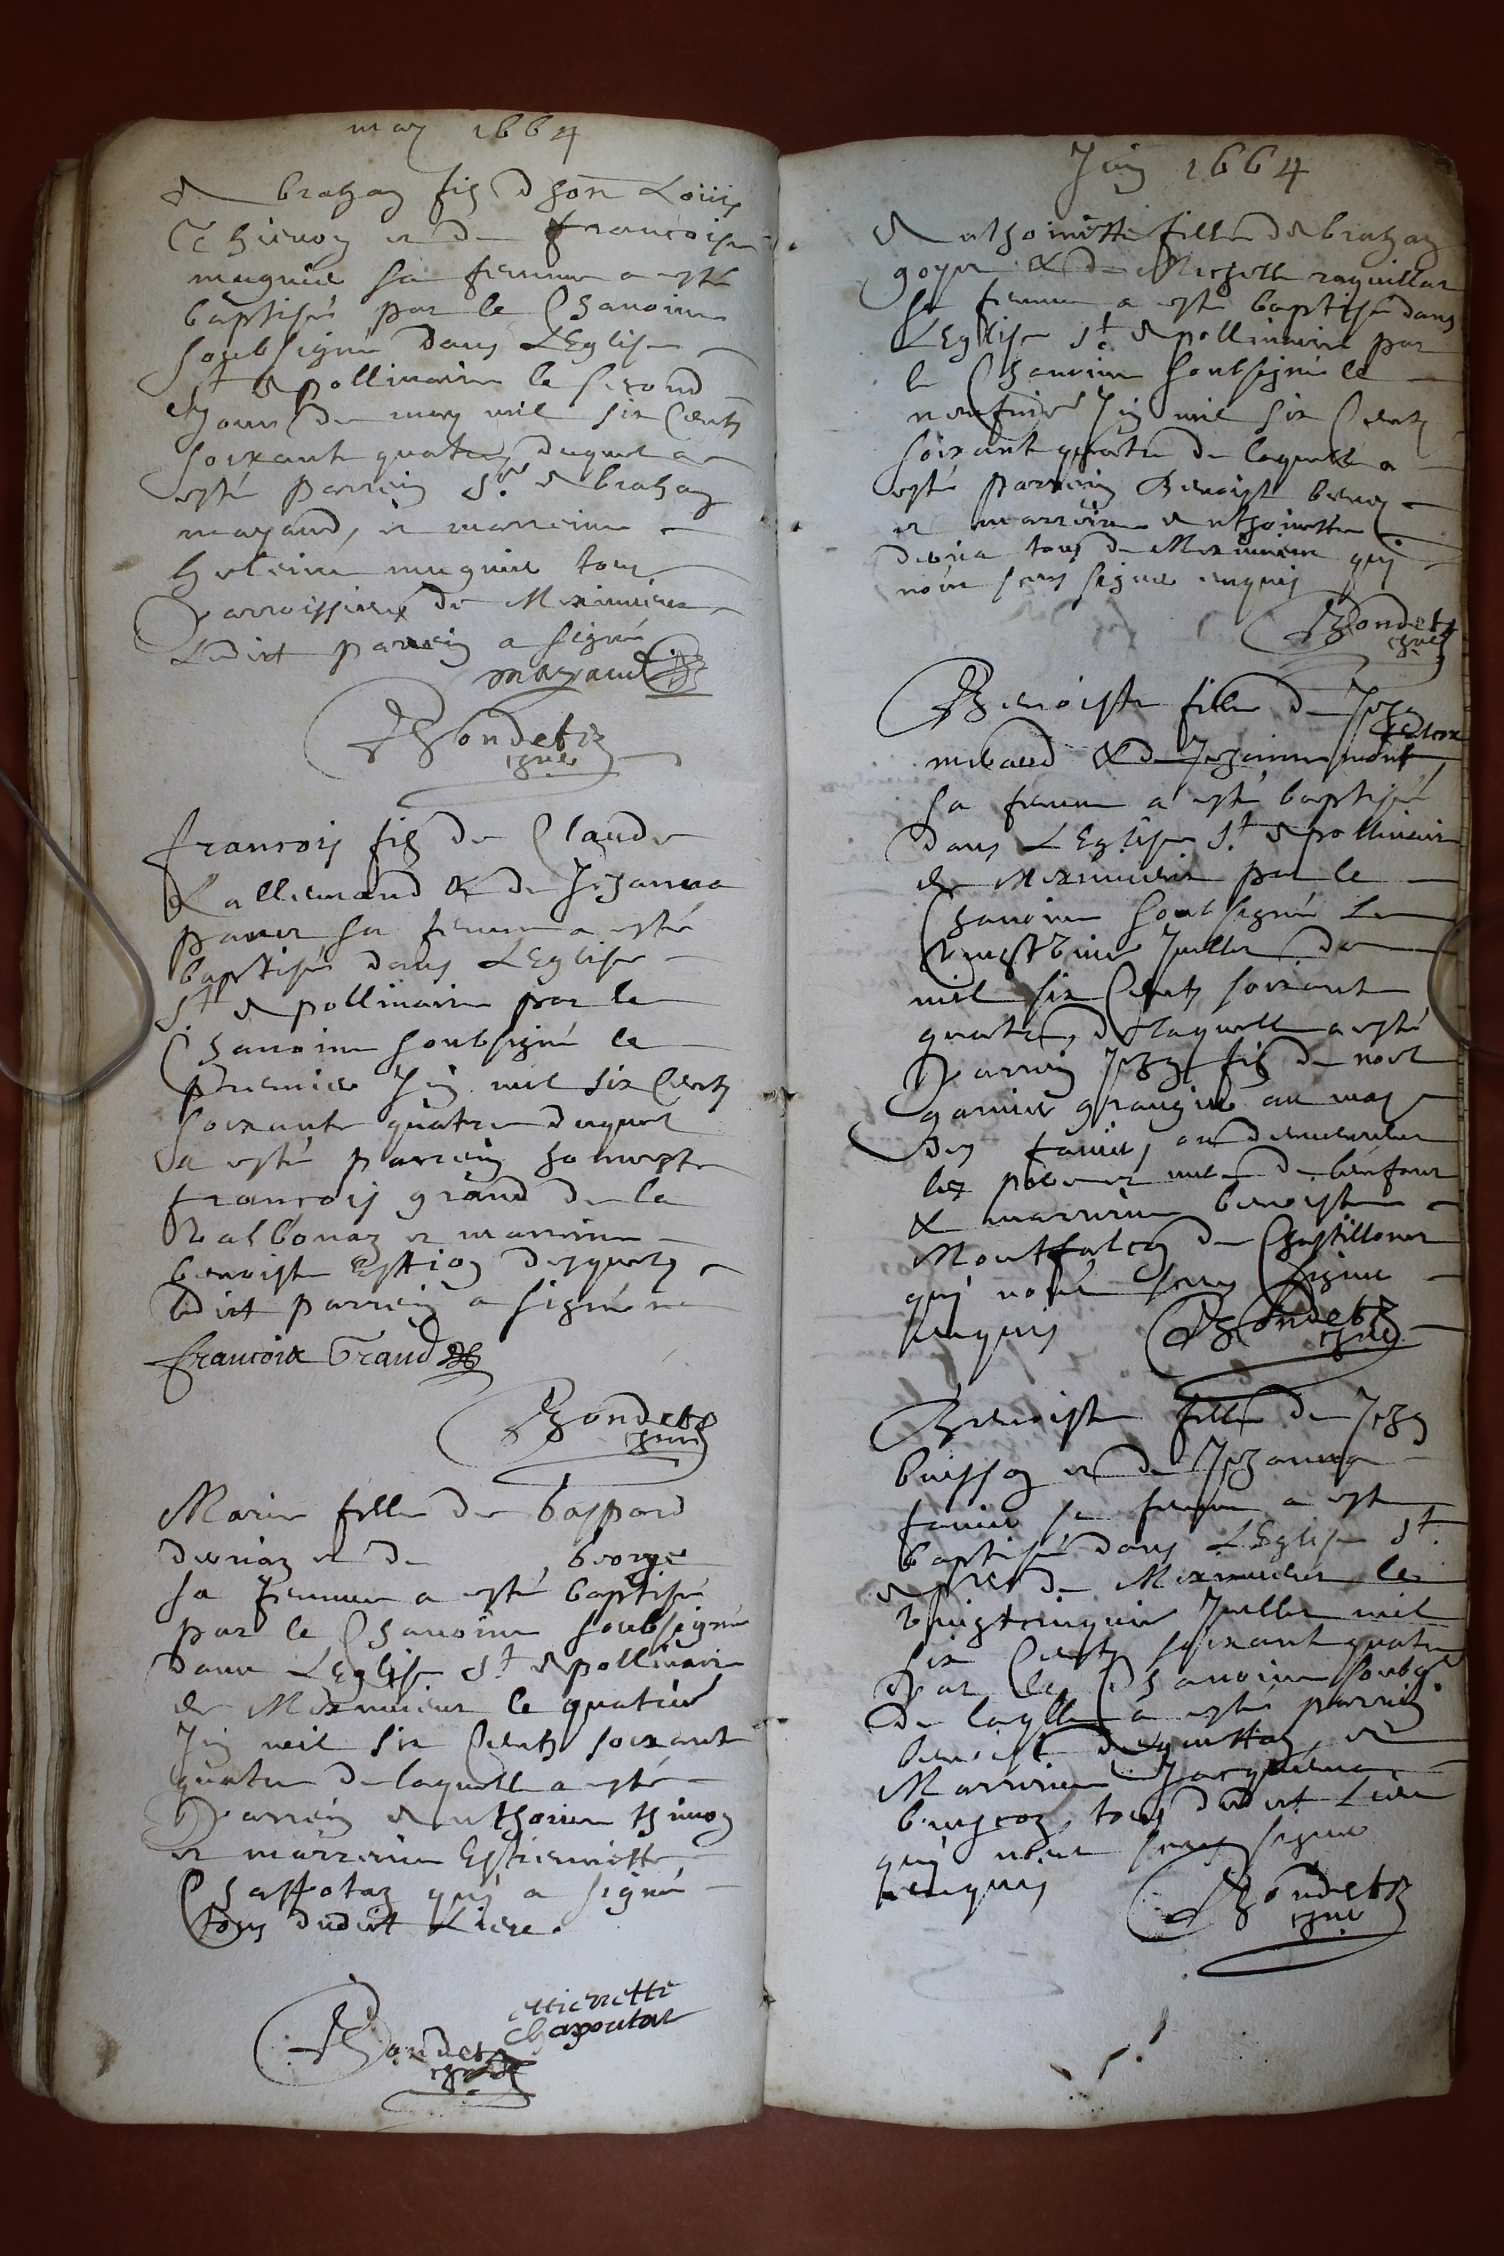 may 1664
Abrahan filz d hon Louis
Thievon et de francoise
mugnier sa femme a esté
baptisé par le Chanoine
soubsigné dans LEglise
St Apollinaire le second
Jour de may mil six Centz
soixante quatre duquel a
esté parrein Sr Abrahan
mayaud, et marreine
heleine mugnier tous
Parroissiens de Meximieux
Ledit parrein a signé
mayaud
Bondet
chne
francois filz de Claude
Lallemand & de Jehanna
paner sa femme a esté
baptisé dans LEglise
St Apollinaire par le
Chanoine soubsigné le
premier Juin mil six Centz
soixante quatre duquel
a esté parrein honneste
francois grand de la
Valbonaz et marreine
benoiste desquelz
ledit parrein a signé
francoix Grand
Bondet
chne
Marie fille de Gaspard
devriaz et de George
sa femme a esté baptisé
par le Chanoine soubsigné
dans LEglise St Apollinaire
de Meximieux le quatrie
Juin mil six Centz soixante
quatre de laquelle a esté
Parrein Anthoine thivon
et marreine Estiennette
Chappotaz qui a signé
tous dudit Lieu.
ettiennette
Chapoutat
Bondet
chne
Juin 1664
Anthoinette fille d Abrahan
goyet & de Michelle raquillat
sa femme a esté baptisé dans
LEglise St Apollinaire par
le Chanoine soubsigné le
neufvie Juin mil six Centz
soixante quatre de laquelle a
esté parrein Benoist
et marreine Anthoinette
devria tous de Meximieux qui
nont sceu signer enquis
Bondet
chne
Benoiste fille de Jehan
mibaud & de Jehanne mont
falcon
sa femme a esté baptisé
dans LEglise St Apollinaire
de Meximieux par le
Chanoine soubsigné Le
Juillet
mil six Centz soixante
quatre, de laquelle a esté
Parrein Jehan filz de noel
garnier granger au mas
& marreine benoiste
Montfalcon de Chastillonet
qui nont sceu signer
enquis
Bondet
chne
Benoiste fille de Jehan
buisson et de Jehanna
favier sa femme a esté
baptisé dans LEglise St
de Meximieux le
vingtcinquie Juillet mil
six Centz soixante quatre
par le Chanoine soubsé
de laqlle a esté parrein
benoist et
Marreine Jacquema
tous dudit Lieu
qui nont sceu signer
enquis
Bondet
chne